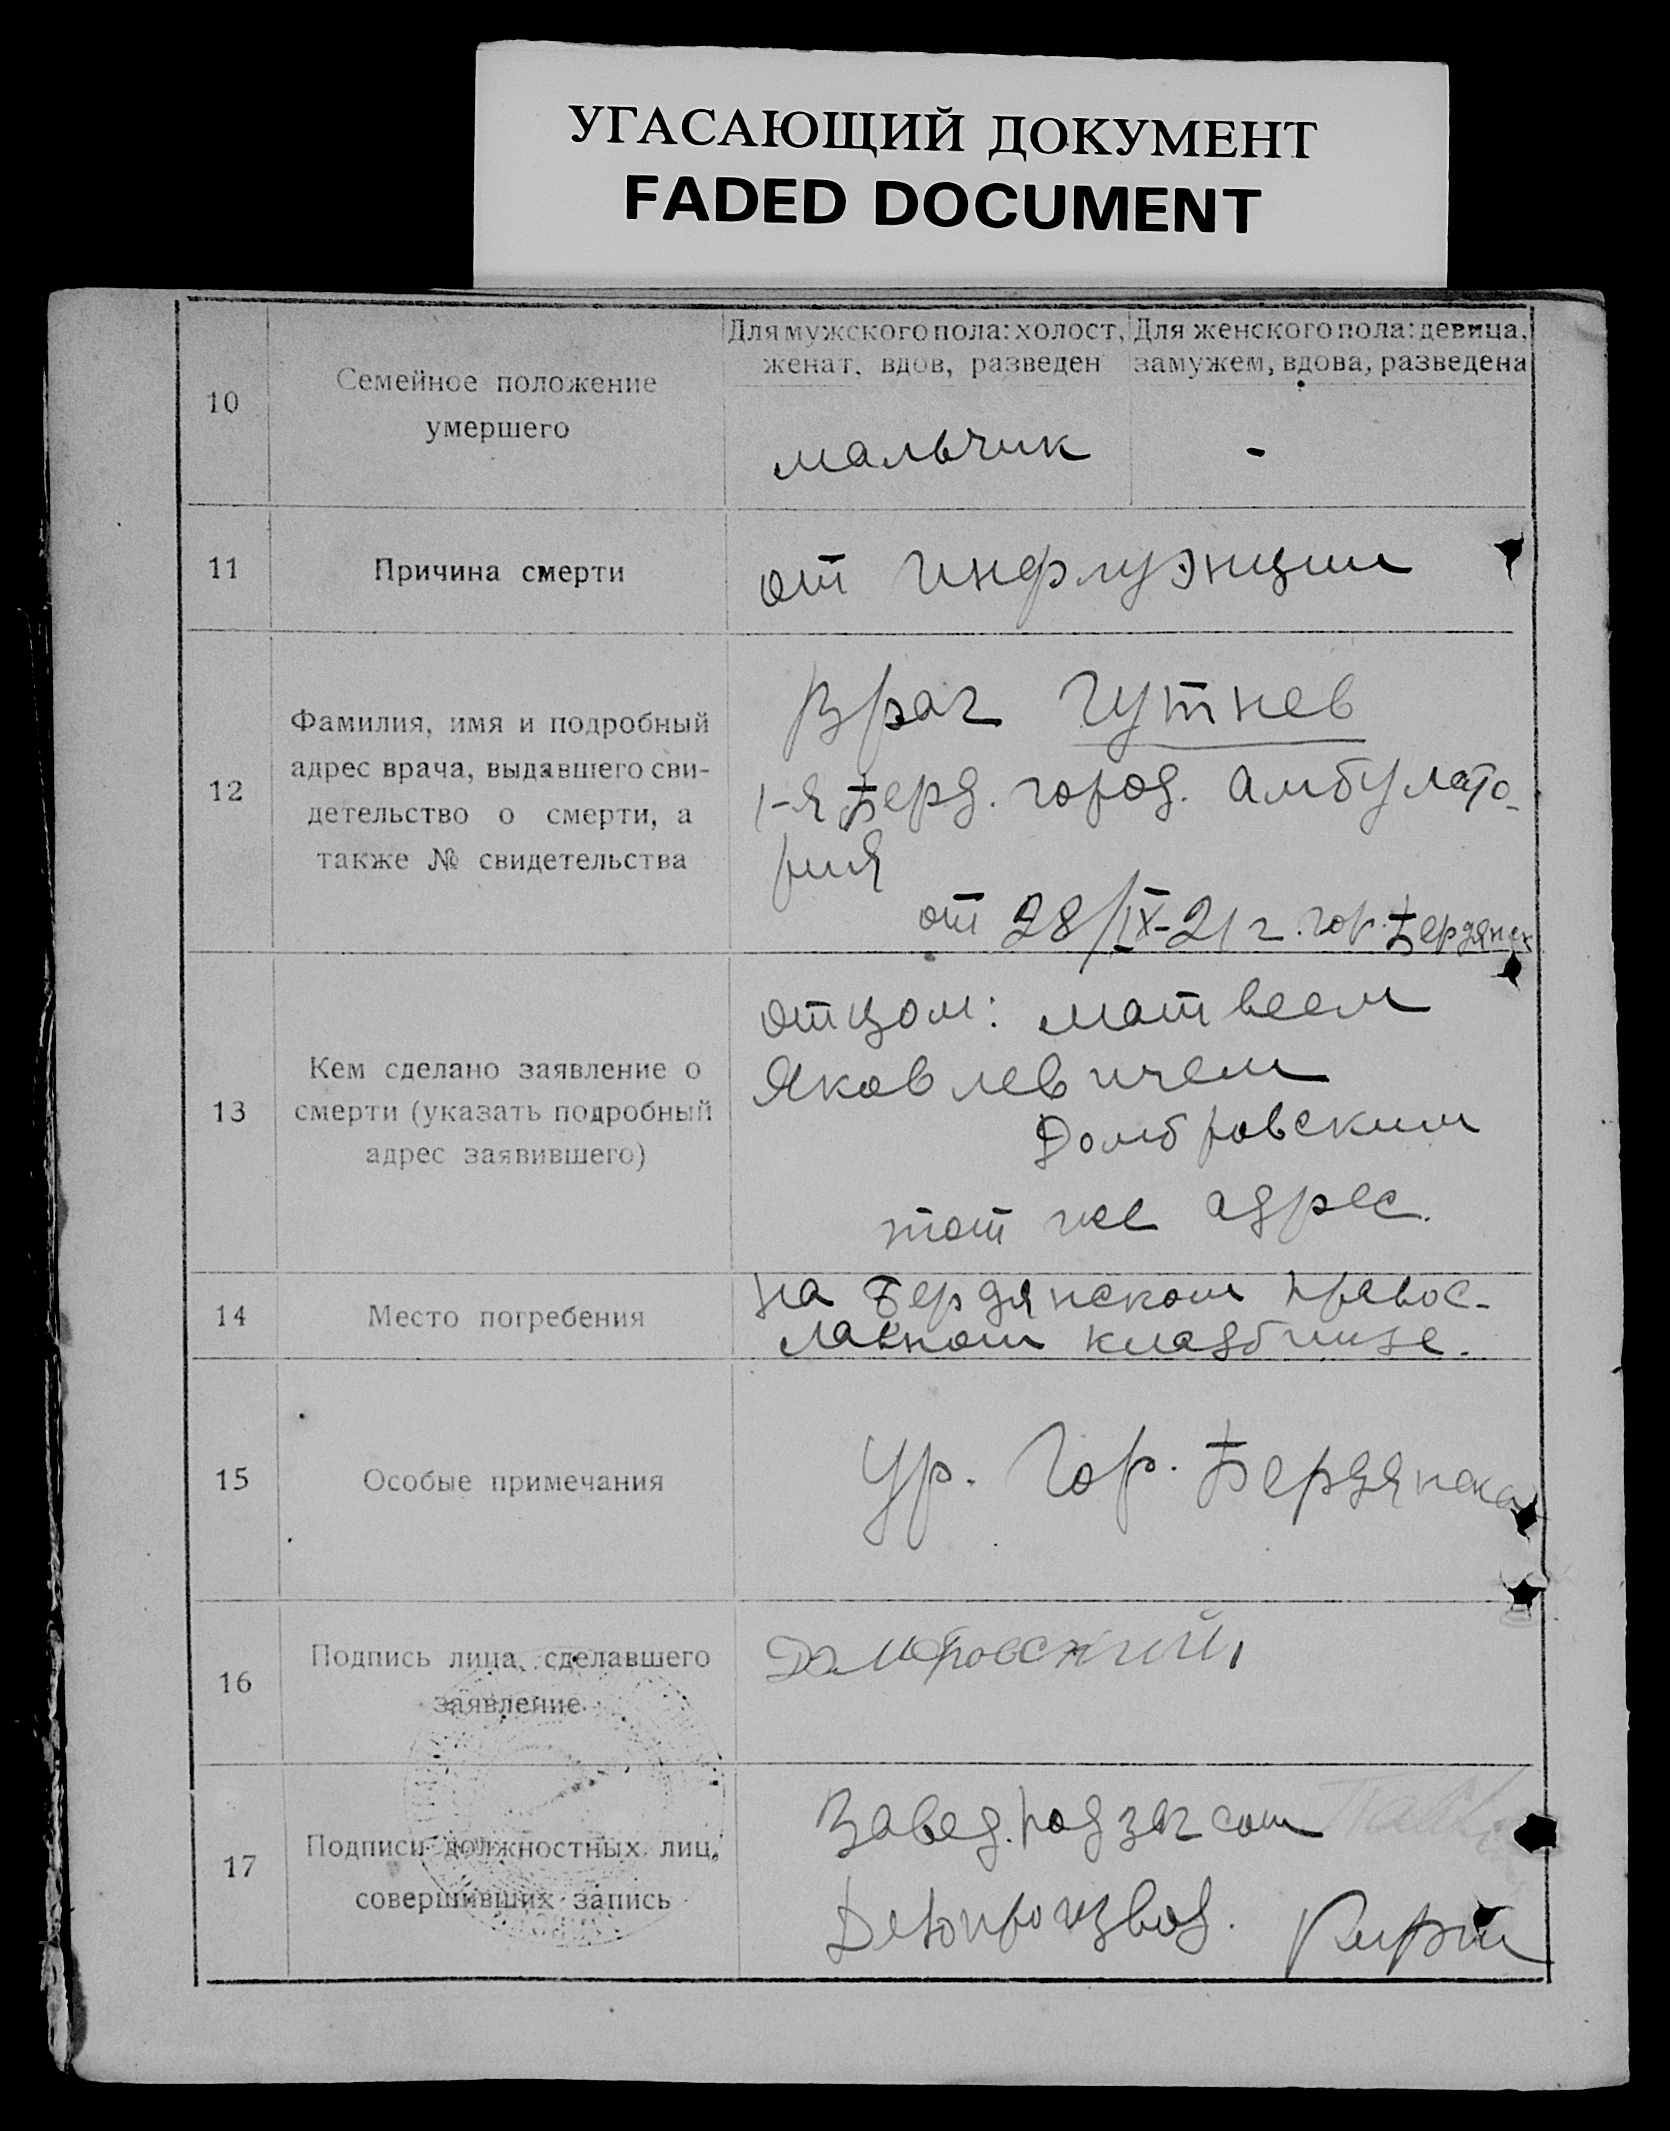 УГАСАЮЩИЙ ДОКУМЕНТ
FADED DOCUMENT
10
Семейное положение
умершего
Для мужского пола: холост,
женат, вдов, разведен
Для женского пола: девица,
замужем, вдова, разведена
мальчик
-
11
Причина смерти
от инфлуэнции
12
Фамилия, имя и подробный
адрес врача, выдавшего сви-
детельство о смерти, а
также № свидетельства
Врач Гутнев
1-я Берд. город. амбулато-
рия
от 28/IX-21 г. гор. Бердянск
13
Кем сделано заявление о
смерти (указать подробный
адрес заявившего)
отцом: Матвеем
Яковлевичем
Домбровским
тот же адрес.
14
Место погребения
на Бердянском правос-
лавном кладбище.
15
Особые примечания
Ур. Гор. Бердянска
16
Подпись лица, сделавшего
заявление
Домбровский
17
Подписи должностных лиц,
совершивших запись
Завед. подзагсом
Делопроизвод.